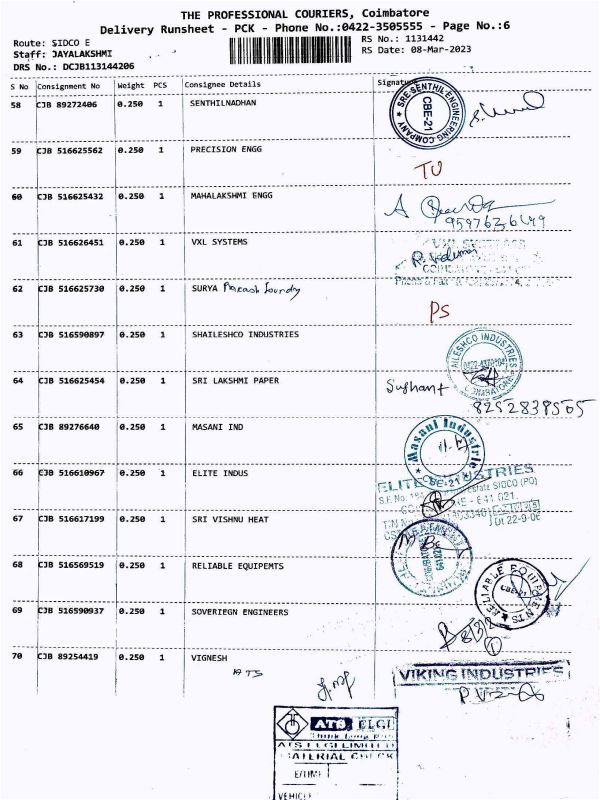 THE PROFESSIONAL COURIERS, Coimbatore
Delivery Runsheet - PCK - Phone No.:0422-3505555 - Page No.:6
Route: SIDCO E
RS No.: 1131442
Staff: JAYALAKSHMI
RS Date: 08-Mar-2023
DRS No.: DCJB113144206
S No Consignment No Weight PCS Consignee Details Signature
58 CJB 89272406 0.250 1 SENTHILNADHAN
SRE SENTHIL ENGINEERING COMPANY
CBE-21
59 CJB 516625562 0.250 1 PRECISION ENGG
TU
60 CJB 516625432 0.250 1 MAHALAKSHMI ENGG
61 CJB 516626451 0.250 1 VXL SYSTEMS
62 CJB 516625730 0.250 1 SURYA Prakash foundry
PS
63 CJB 516590897 0.250 1 SHAILESHCO INDUSTRIES
AILESHCO INDUSTRIES
COIMBATORE
64 CJB 516625454 0.250 1 SRI LAKSHMI PAPER
Sushant
65 CJB 89276640 0.250 1 MASANI IND
Masani Industrie
CBE-21
66 CJB 516610967 0.250 1 ELITE INDUS
ELITE STRIES
67 CJB 516617199 0.250 1 SRI VISHNU HEAT
Dt 22-9-06
68 CJB 516569519 0.250 1 RELIABLE EQUIPEMTS
RELIABLE EQUIPMENTS
CBE-21
69 CJB 516590937 0.250 1 SOVERIEGN ENGINEERS
70 CJB 89254419 0.250 1 VIGNESH
VIKING INDUSTRIES
ATS ELGI
ATS ELGI LIMITED
MATERIAL CHECK
E/TIME
VEHICLE